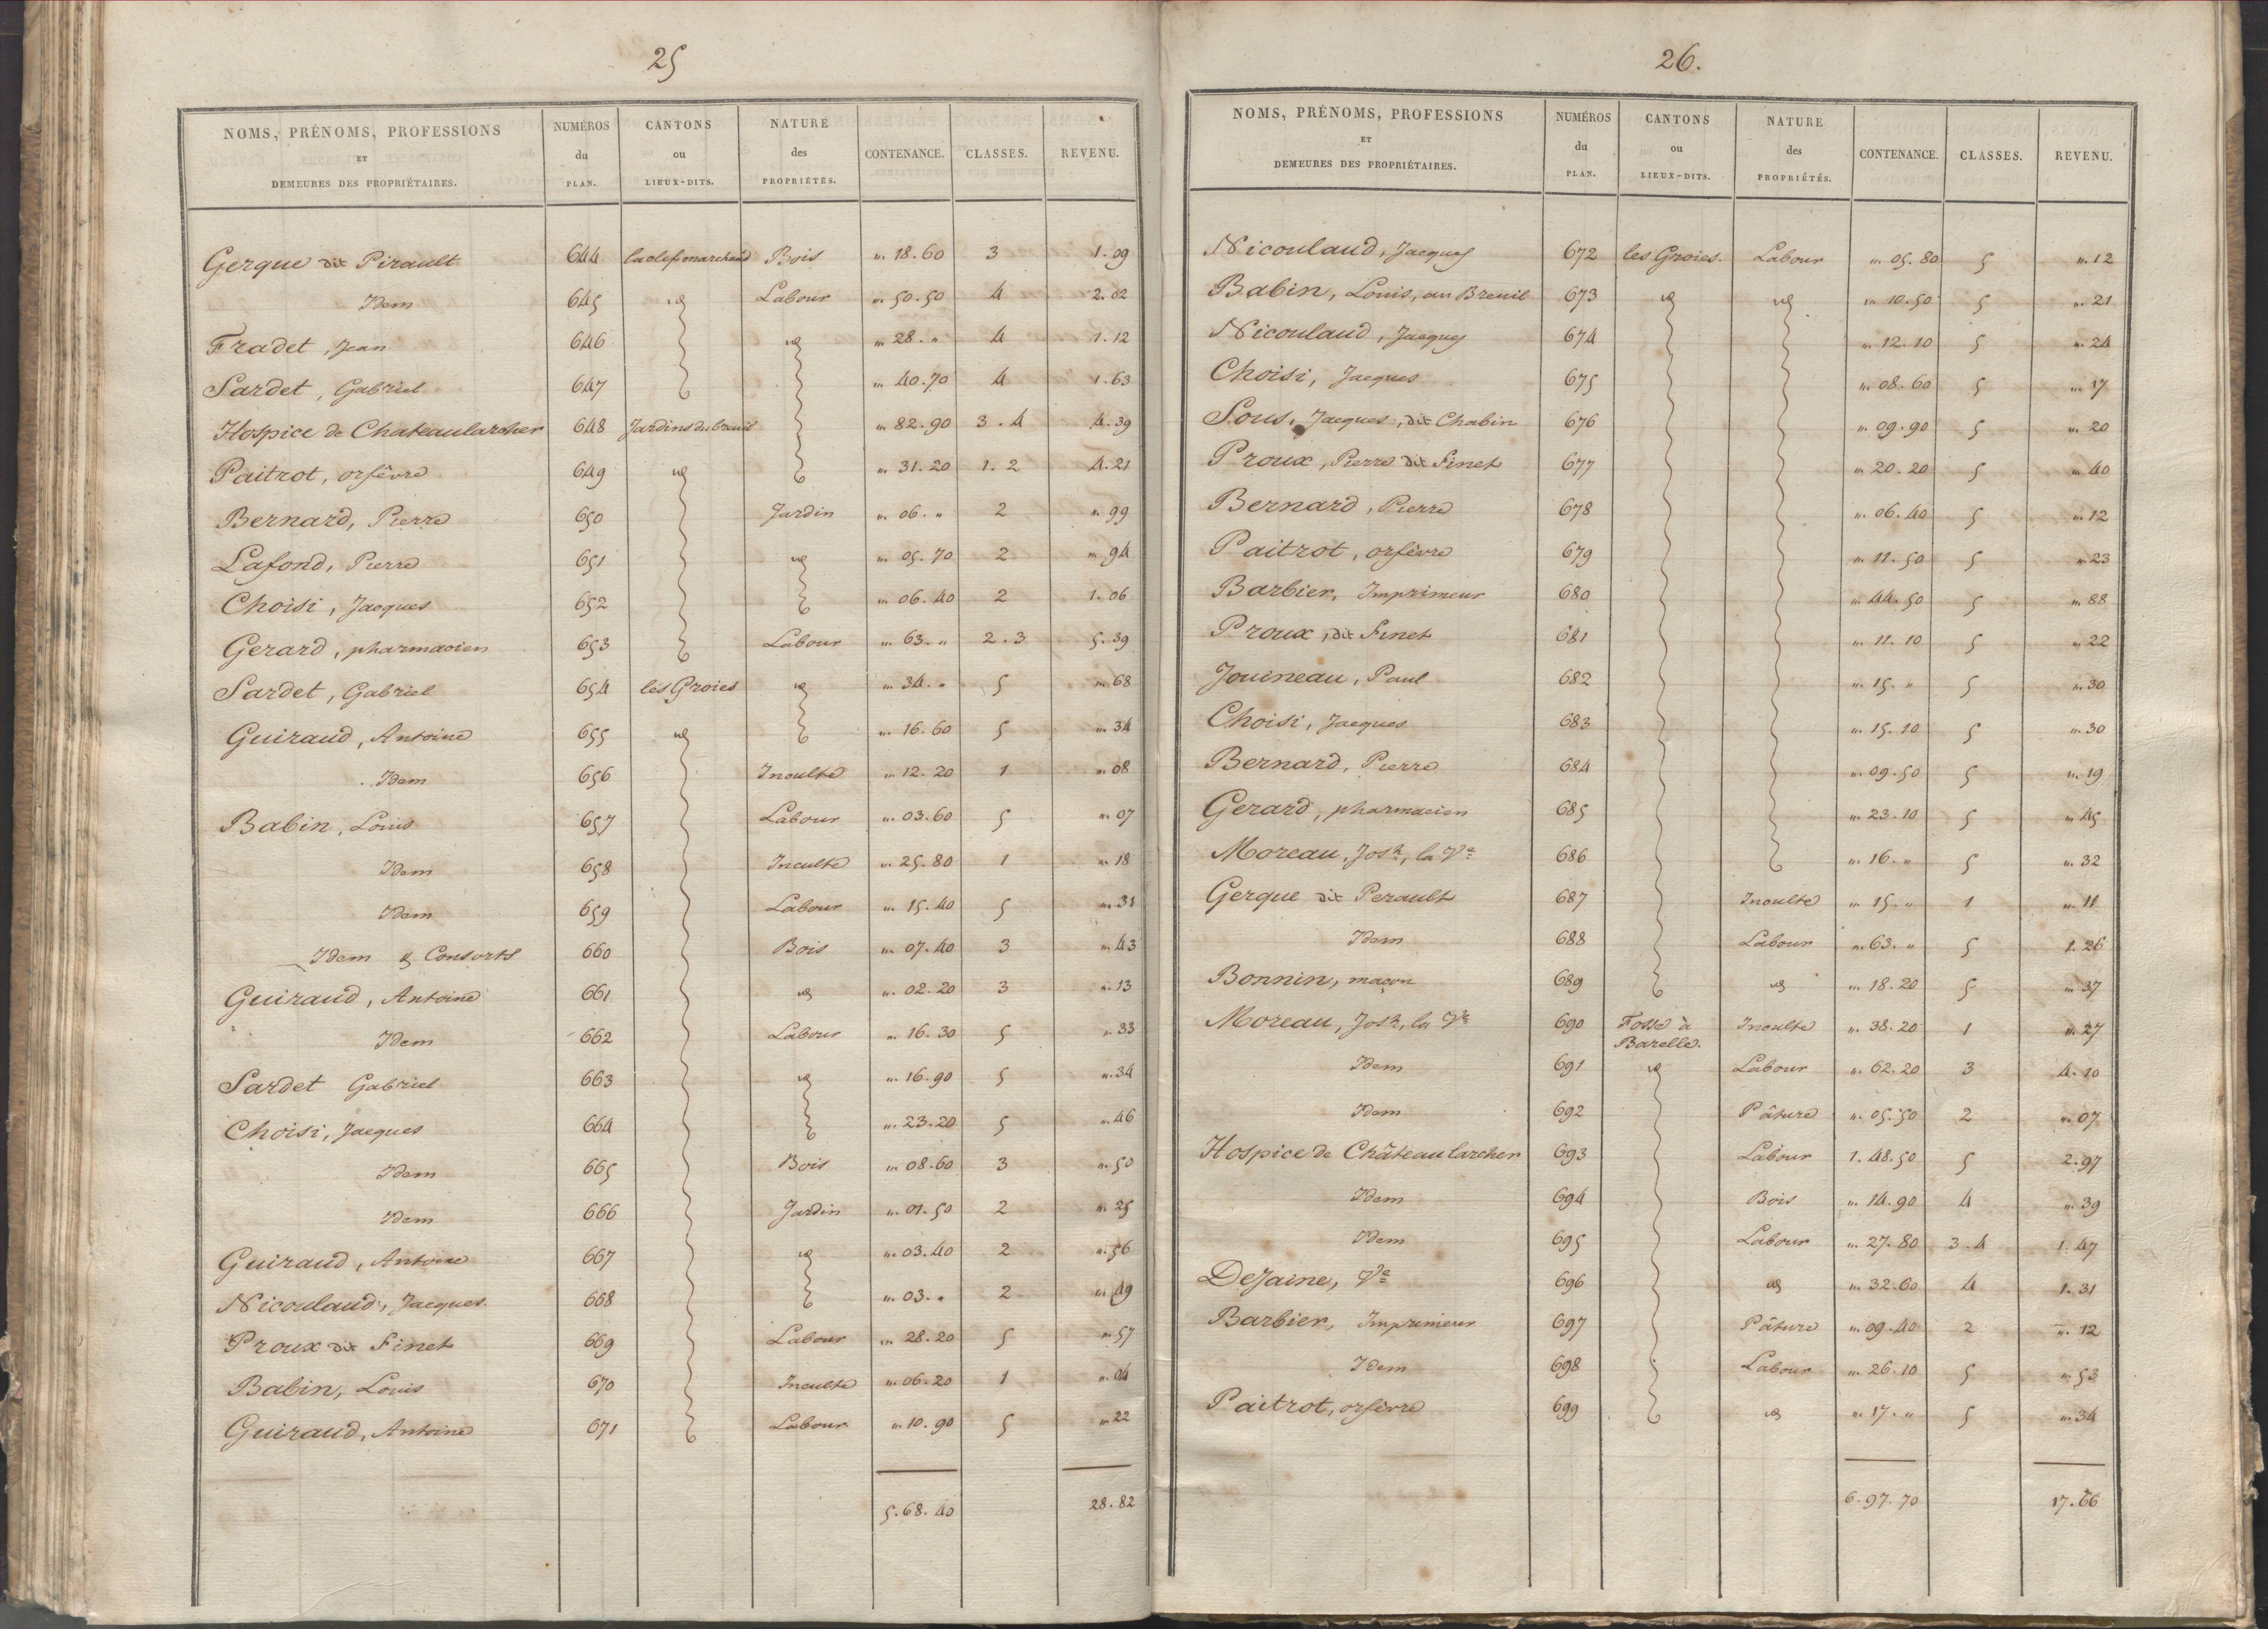 25
NOMS, PRÉNOMS, PROFESSIONS ET DEMEURES DES PROPRIÉTAIRES. NUMÉROS du PLAN. CANTONS ou LIEUX-DITS. NATURE des PROPRIÉTÉS. CONTENANCE. CLASSES. REVENU.
Gerque dit Pirault 644 la clef marchand Bois „. 18. 60 3 1. 09
Idem 645 id Labour „. 50. 50 4 2. 02
Fradet, Jean 646 id „. 28. „ 4 1. 12
Sardet, Gabriel 647 „. 40. 70 4 1. 63
Hospice de Chateaularcher 648 Jardins du breuil „. 82. 90 3. 4 4. 39
Paitrot, orfèvre 649 id „. 31. 20 1. 2 4. 21
Bernard, Pierre 650 Jardin „. 06. „ 2 „. 99
Lafond, Pierre 651 id „. 05. 70 2 „. 94
Choisi, Jacques 652 „. 06. 40 2 1. 06
Gerard, pharmacien 653 Labour „. 63. „ 2. 3 5. 39
Sardet, Gabriel 654 les Groies id „. 34. „ 5 „. 68
Guiraud, Antoine 655 id „. 16. 60 5 „. 34
Idem 656 Inculte „. 12. 20 1 „. 08
Babin, Louis 657 Labour „. 03. 60 5 „. 07
Idem 658 Inculte „. 25. 80 1 „. 18
Idem 659 Labour „. 15. 40 5 „. 31
Idem & Consorts 660 Bois „. 07. 40 3 „. 43
Guiraud, Antoine 661 id „. 02. 20 3 „. 13
Idem 662 Labour „. 16. 30 5 „. 33
Sardet Gabriel 663 id „. 16. 90 5 „. 34
Choisi, Jacques 664 „. 23. 20 5 „. 46
Idem 665 Bois „. 08. 60 3 „. 50
Idem 666 Jardin „. 01. 50 2 „. 25
Guiraud, Antoine 667 id „. 03. 40 2 „. 56
Nicoulaud, Jacques 668 „. 03. „ 2 „. 49
Proux dit Finet 669 Labour „. 28. 20 5 „. 57
Babin, Louis 670 Inculte „. 06. 20 1 „. 04
Guiraud, Antoine 671 Labour „. 10. 90 5 „. 22
5. 68. 40 28. 82
26.
NOMS, PRÉNOMS, PROFESSIONS ET DEMEURES DES PROPRIÉTAIRES. NUMÉROS du PLAN. CANTONS ou LIEUX-DITS. NATURE des PROPRIÉTÉS. CONTENANCE. CLASSES. REVENU.
Nicoulaud, Jacques 672 les Groies. Labour „. 05. 80 5 „. 12
Babin, Louis, au Breuil 673 id id „. 10. 50 5 „. 21
Nicoulaud, Jacques 674 „. 12. 10 5 „. 24
Choisi, Jacques 675 „. 08. 60 5 „. 17
Sous, Jacques, dit Chabin 676 „. 09. 90 5 „. 20
Proux, Pierre dit Finet 677 „. 20. 20 5 „. 40
Bernard, Pierre 678 „. 06. 40 5 „. 12
Paitrot, orfèvre 679 „. 11. 50 5 „. 23
Barbier, Imprimeur 680 „. 44. 50 5 „. 88
Proux, dit Finet 681 „. 11. 10 5 „. 22
Jouineau, Paul 682 „. 15. „ 5 „. 30
Choisi, Jacques 683 „. 15. 10 5 „. 30
Bernard, Pierre 684 „. 09. 50 5 „. 19
Gerard, pharmacien 685 „. 23. 10 5 „. 45
Moreau, Josh, la Ve 686 „. 16. „ 5 „. 32
Gerque dit Perault 687 Inculte „. 15. „ 1 „. 11
Idem 688 Labour „. 63. „ 5 1. 26
Bonnin, maçon 689 id „. 18. 20 5 „. 37
Moreau, Josh, la Ve 690 Fosse à Barelle. Inculte „. 38. 20 1 „. 27
Idem 691 id Labour „. 62. 20 3 4. 10
Idem 692 Pâture „. 05. 50 2 „. 07
Hospice de Châteaularcher 693 Labour 1. 48. 50 5 2. 97
Idem 694 Bois „. 14. 90 4 „. 39
Idem 695 Labour „. 27. 80 3. 4 1. 47
Dejaine, Ve 696 id „. 32. 60 4 1. 31
Barbier, Imprimeur 697 Pâture „. 09. 40 2 „. 12
Idem 698 Labour „. 26. 10 5 „. 53
Paitrot, orfèvre 699 id „. 17. „ 5 „. 34
6. 97. 70 17. 66